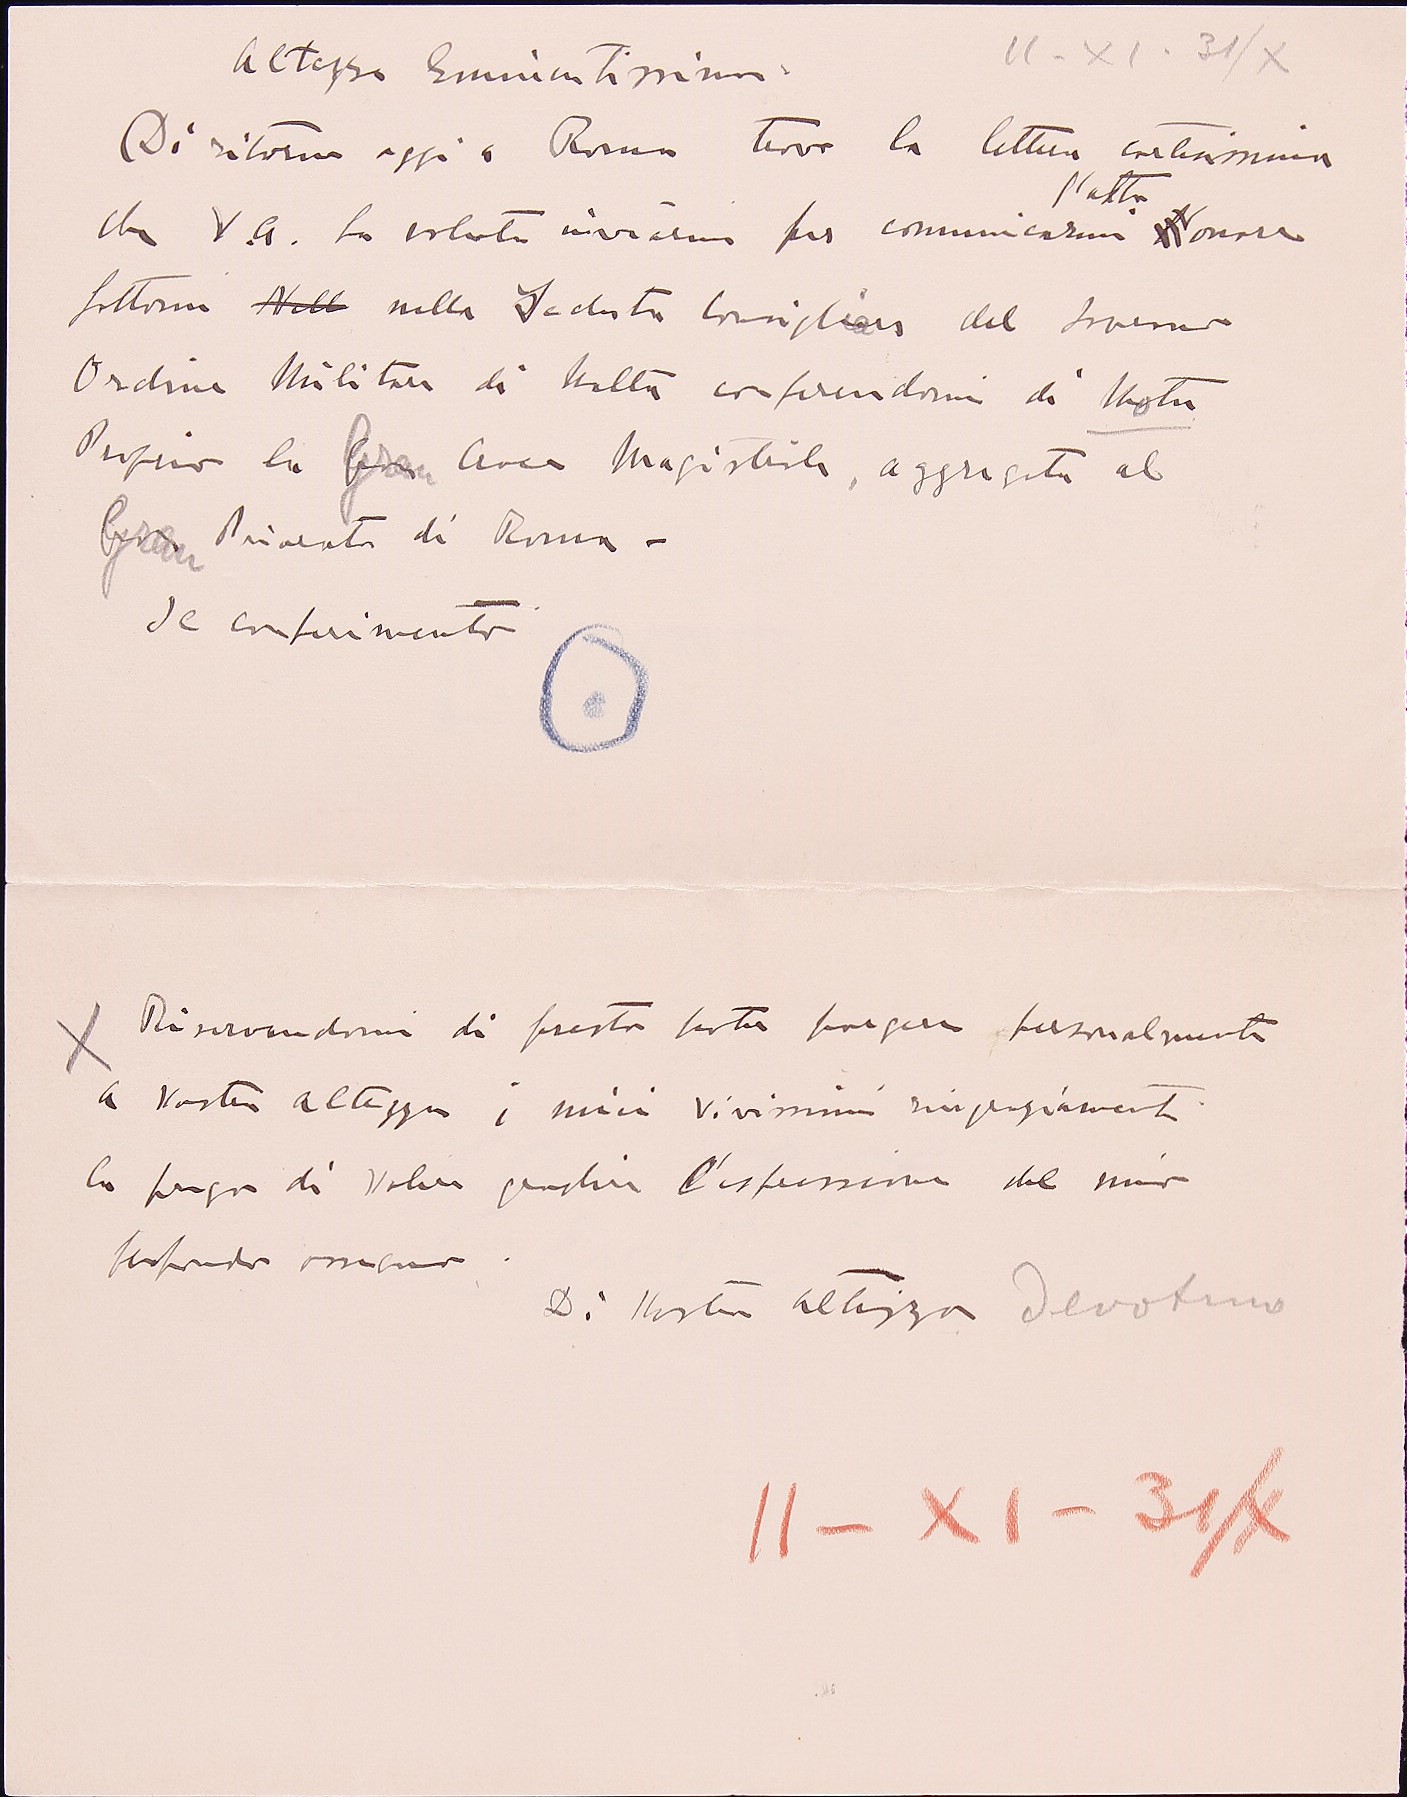 11 - XI - 31/X
Altezza Eminentissima.
Di ritorno oggi a Roma trovo la lettera cortesissima
l'alto
che V.A. ha voluto inviarmi per comunicarmi onore
fattomi Nell nella Seduta Consigliare del Sovrano
Ordine Militare di Malta conferendomi di Motu
Proprio la Gran Croce Magistrale, aggregata al
Gran Priorato di Roma -
Il conferimento
X Riservandomi di presto poter porgere personalmente
a Vostra Altezza i miei vivissimi ringraziamenti
La prego di voler gradire l'espressione del mio
profondo ossequio.
Di Vostra Altezza Devotmo
11 - XI - 31/X